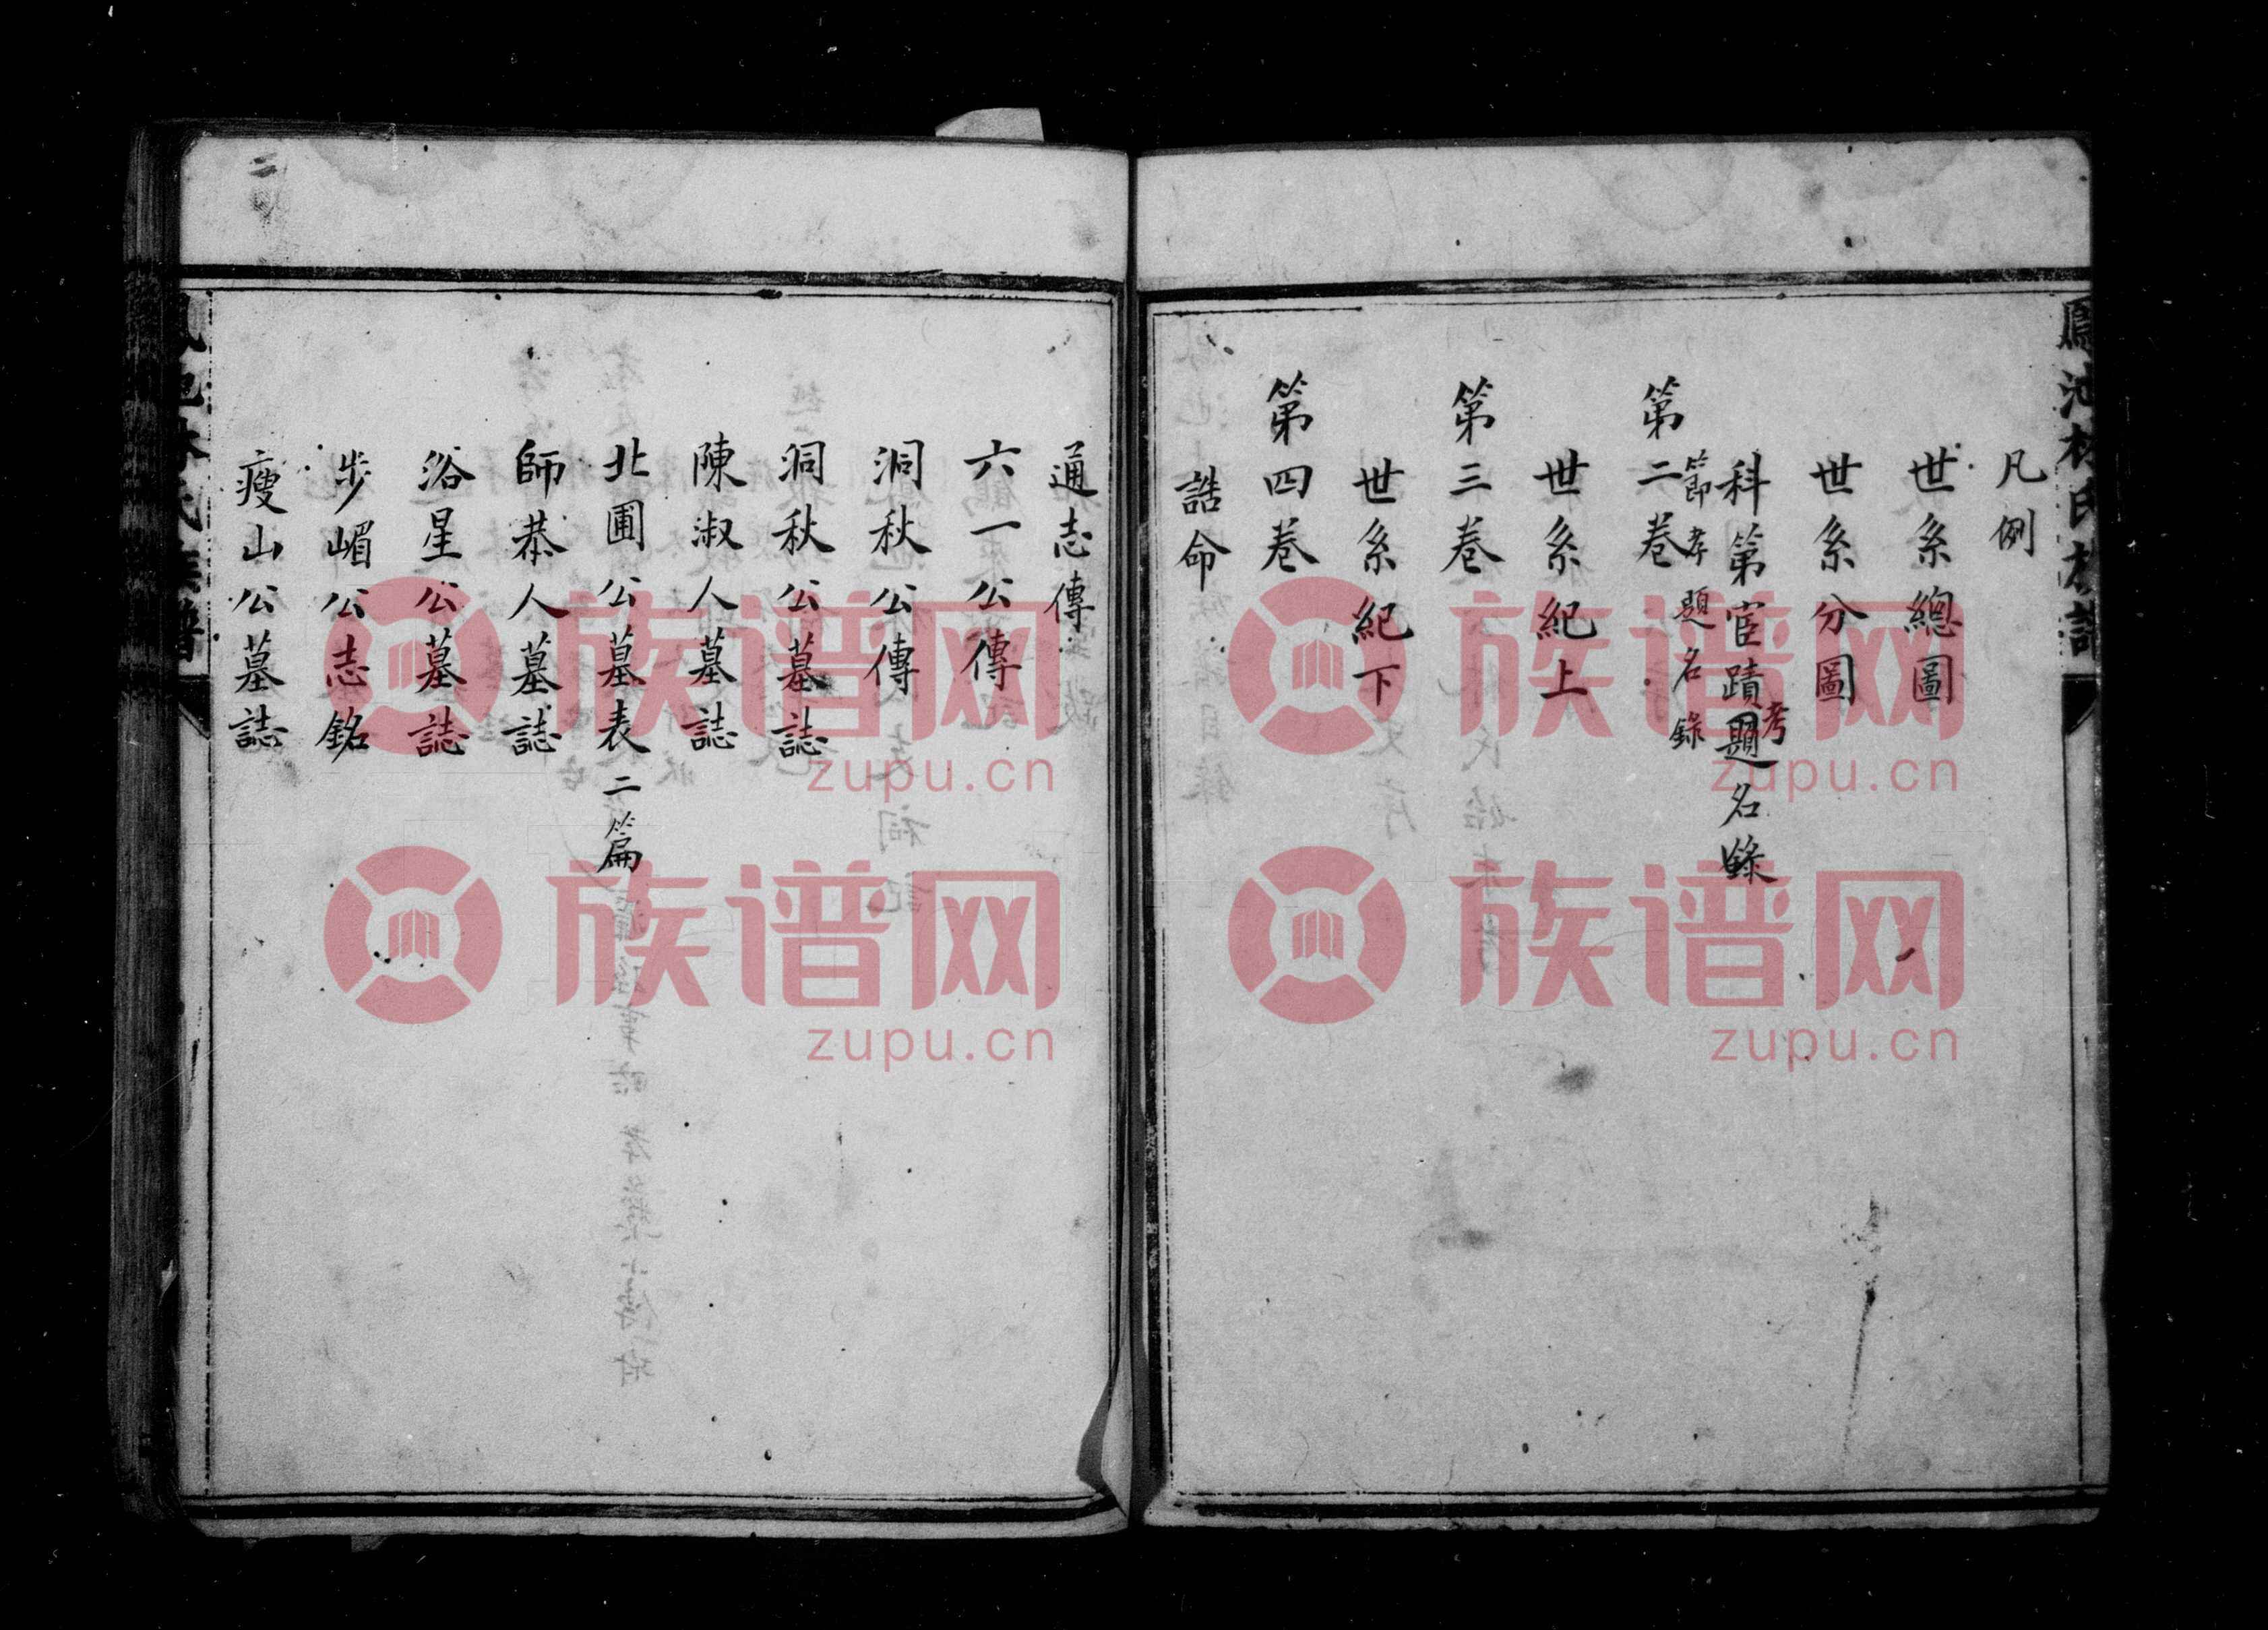 鳳池林氏族譜
凡例
世系總圖
世系分圖
科第宦蹟題名錄
考
節孝題名錄
第二卷
世系紀上
第三卷
世系紀下
第四卷
誥命
通志傳
六一公傳
洞秋公傳
洞秋公墓誌
陳淑人墓誌
北圃公墓表二篇
師恭人墓誌
浴星公墓誌
步嵋公志銘
瘦山公墓誌
鳳池林氏族譜
二
族谱网
zupu.cn
族谱网
zupu.cn
族谱网
zupu.cn
族谱网
zupu.cn